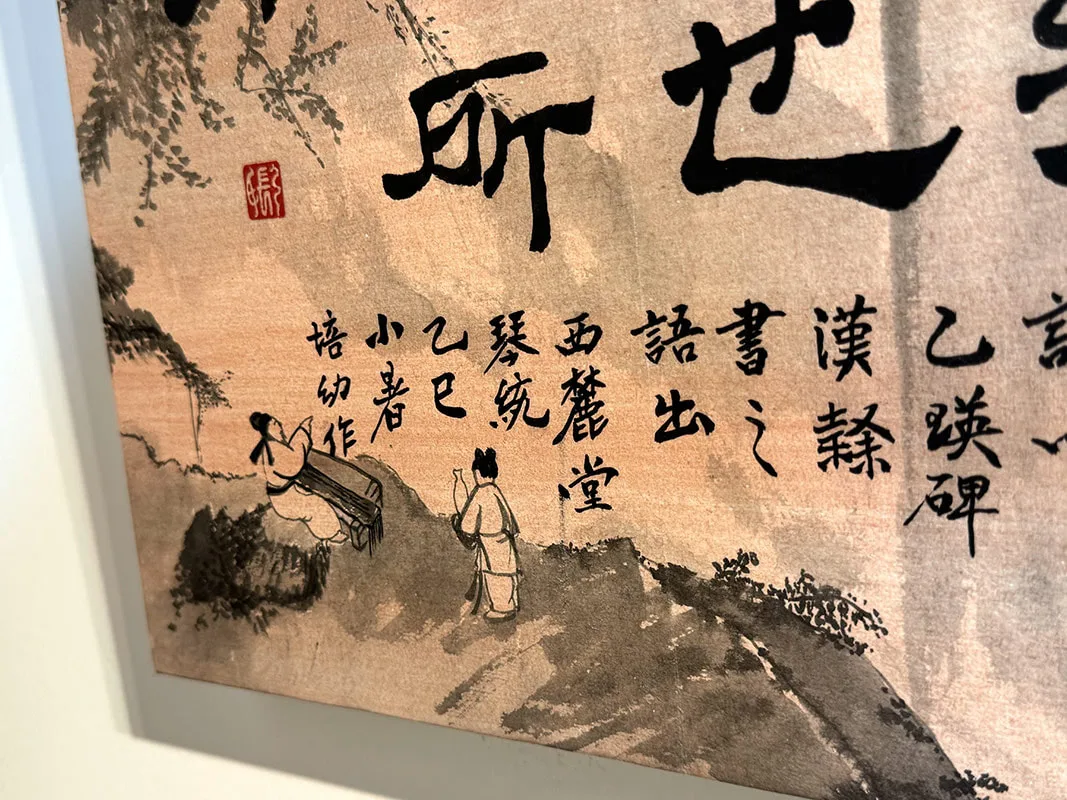 也
所
乙瑛碑
漢隸
書之
語出
西麓堂
琴統
乙巳
小暑
培幼作